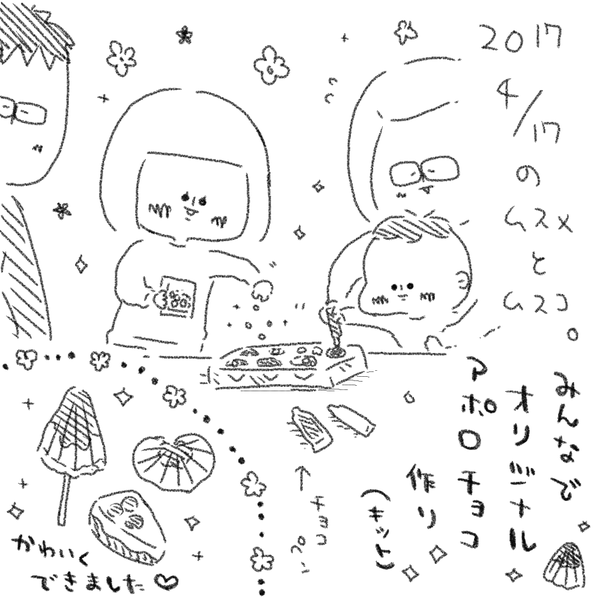 2017
4/17
の
ムスメ
と
ムスコ。
みんなで
オリジナル
アポロチョコ
作り
(キット)
チョコペン
かわいく
できました♡